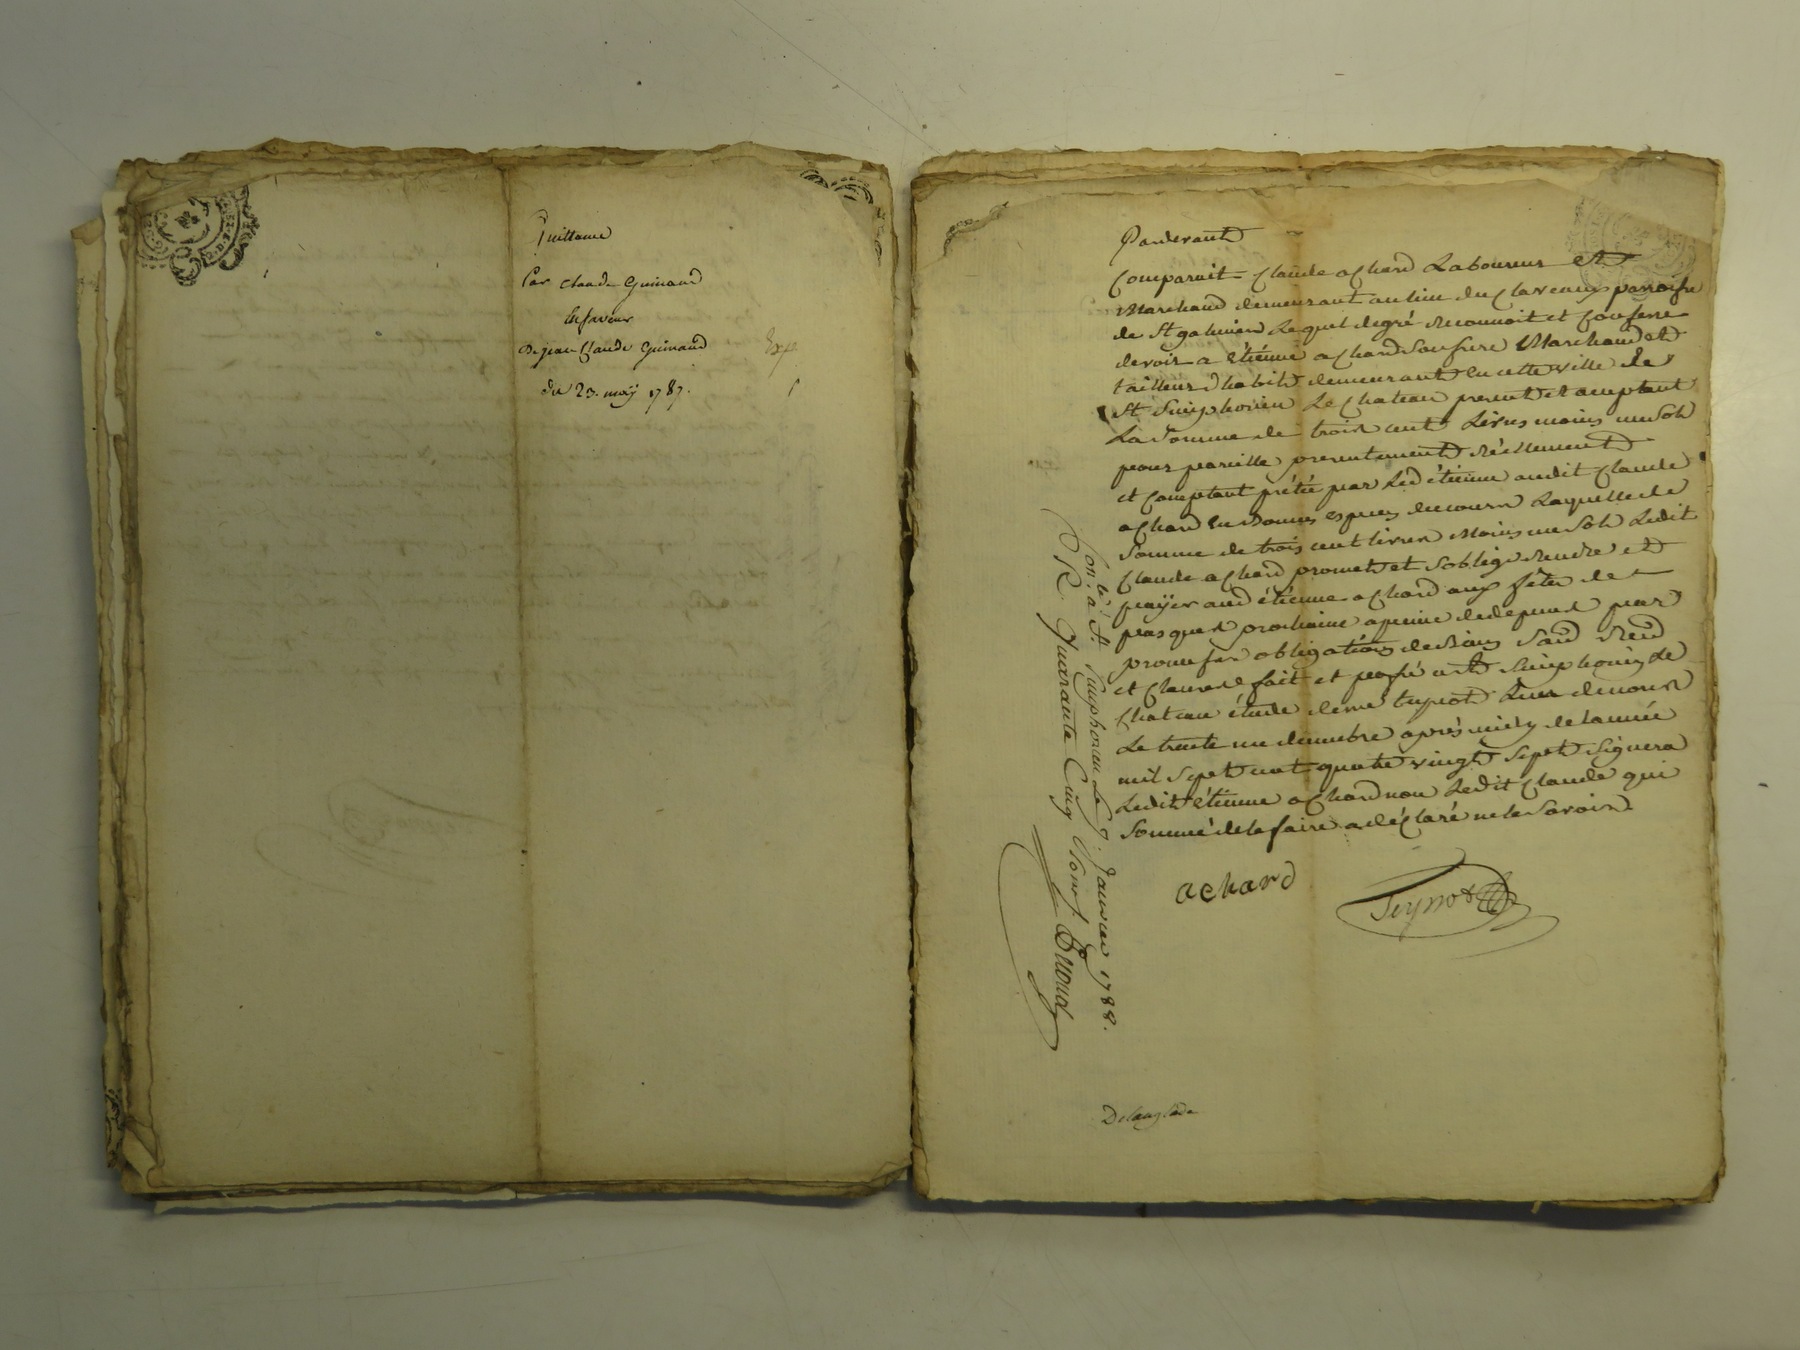 Quittance
Par Claude Guinand
En faveur
De jean Claude Guinand
du 23. may 1787.
Exp.
Pardevant
Comparait Claude achard Laboureur et
Marchand demeurant au lieu du Claveau parroisse
de St galmier Lequel degré reconnoit et Confesse
devoir a étienne achard Son frere Marchand et
tailleur d'habits demeurant en cette ville de
St Simphorien Le Chateau present et acceptant
La Somme de trois cent Livres moins un Sol
pour pareille presentement réellement
et Comptant prétée par Led étienne audit Claude
achard en Bonnes especes de cours Laquelle de
Somme de trois cent livres Moins un Sol Ledit
Claude achard promet et S'oblige rendre et
payer aud étienne achard aux fétes de
pasques prochaine a peine de depens par
promesses obligations de Biens Sans rend
et Clauses fait et passé a St Simphorien Le
Chateau étude de me Lundi
Le trente un decembre après midy de l'année
mil Sept cent quatre vingt Sept Signera
Ledit étienne achard non Ledit Claude qui
Sommé de le faire a déclaré ne le Savoir
achard
Con.lé a St Simphorien Le 9. Janvier 1788.
R. Quarante Cinq Sous
Delanglade